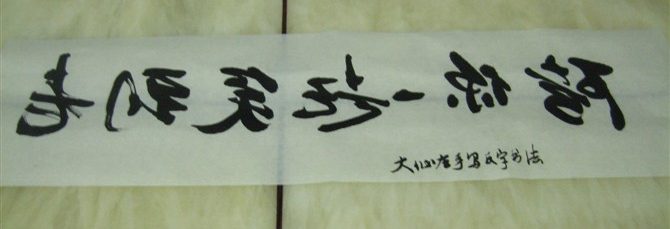 陪你一起笑到老
大仙左手写反字书法